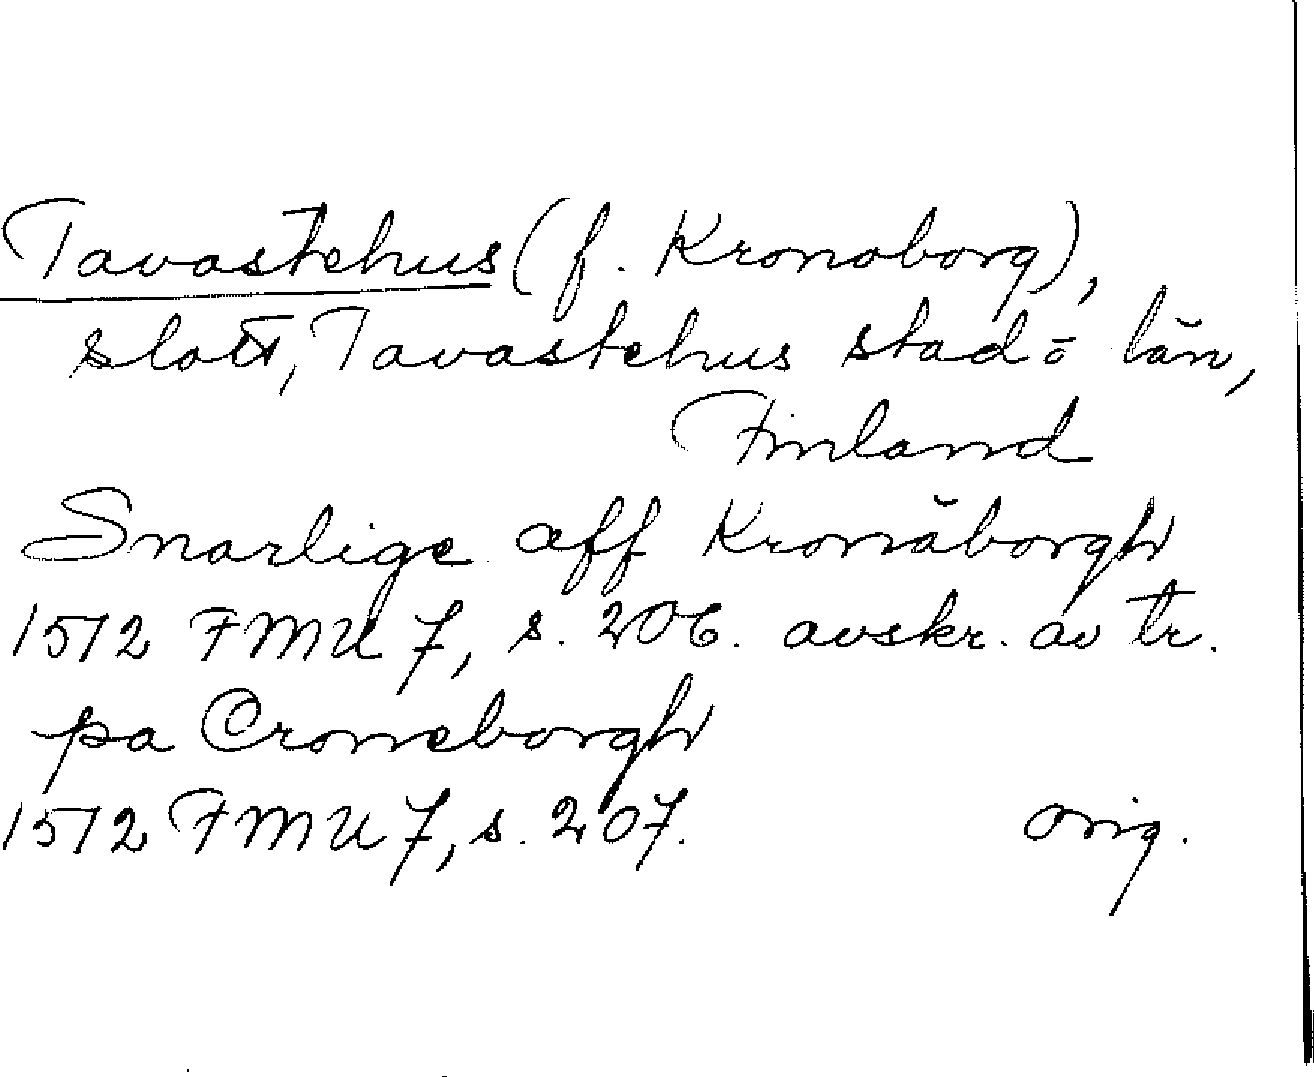 Tavastehus (f. Kronoborg),
slott, Tavastehus stad o län,
Finland
Snarlige aff Kronäborgh
1512 FMU 7, s. 206. avskr. av tr.
pa Croneborgh
1512 FMU 7, s. 207. orig.